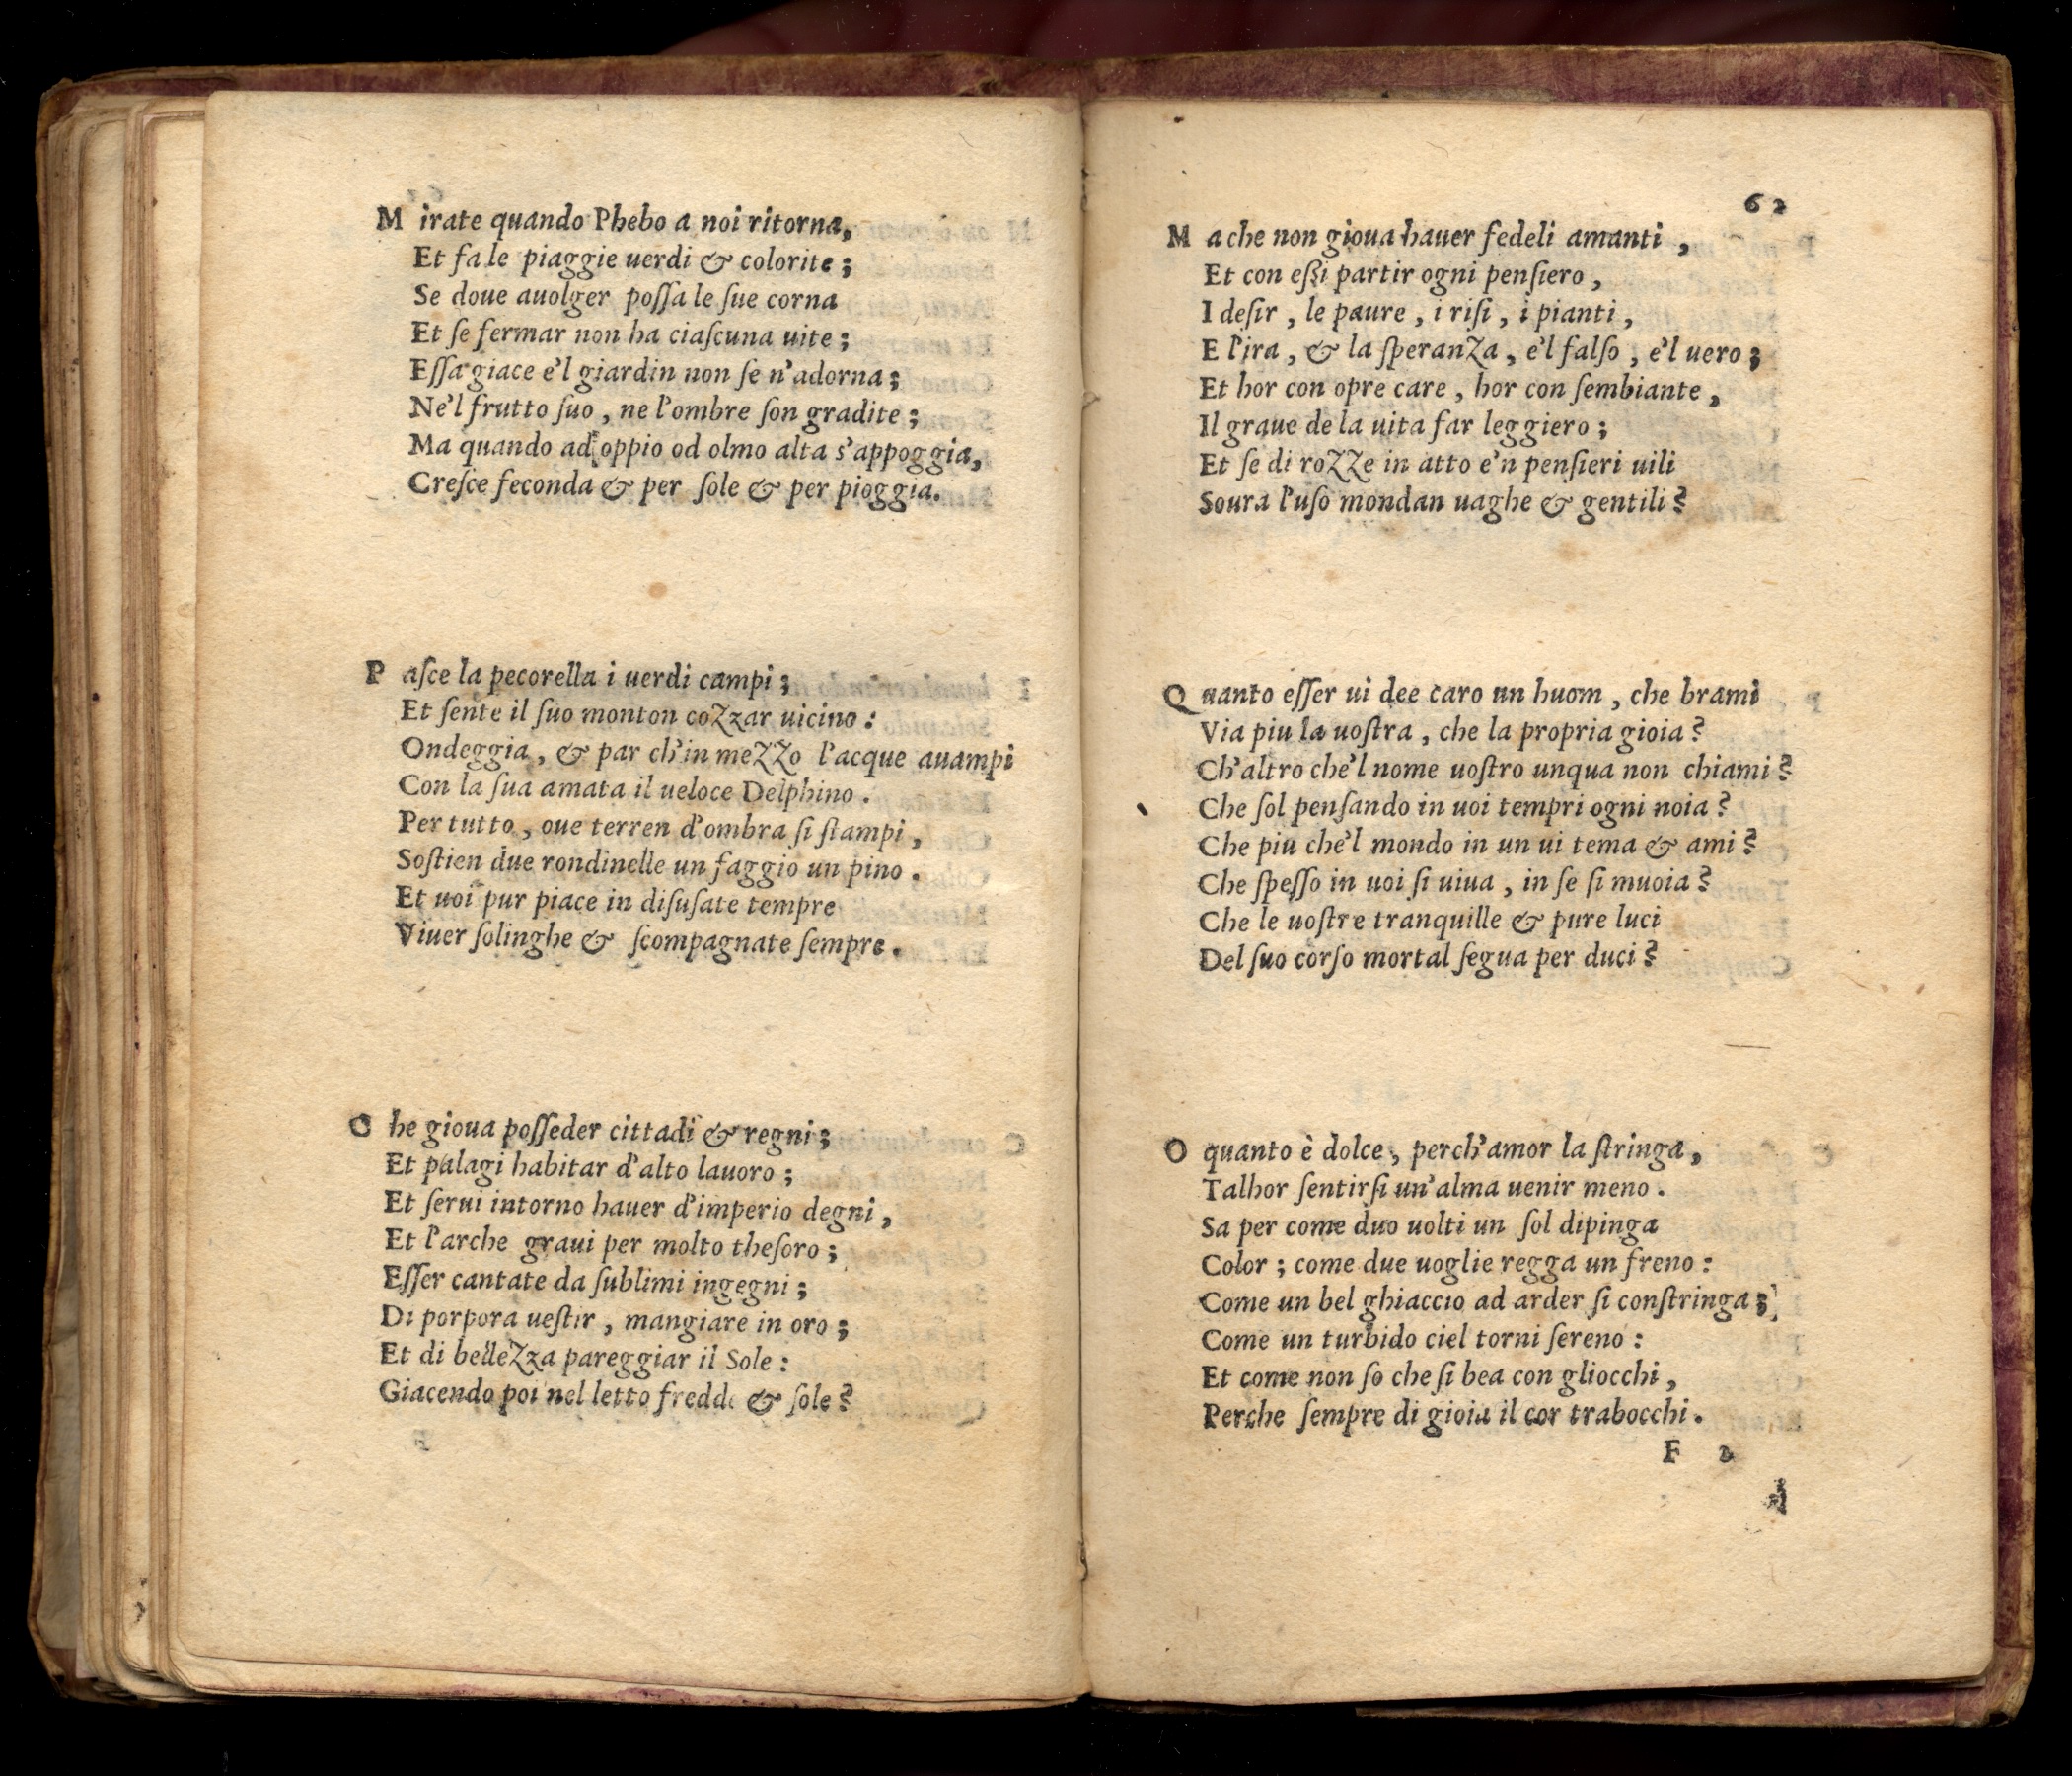 M irate quando Phebo a noi ritorna,
Et fa le piaggie uerdi & colorite;
Se doue auolger poſſa le ſue corna
Et ſe fermar non ha ciaſcuna uite;
Eſſa giace e'l giardin non ſe n'adorna;
Ne'l frutto ſuo, ne l'ombre ſon gradite;
Ma quando ad oppio od olmo alta s'appoggia,
Creſce feconda & per ſole & per pioggia.
P aſce la pecorella i uerdi campi;
Et ſente il ſuo monton cozzar uicino:
Ondeggia, & par ch'in mezzo l'acque auampi
Con la ſua amata il ueloce Delphino.
Per tutto, oue terren d'ombra ſi ſtampi,
Soſtien due rondinelle un faggio un pino.
Et uoi pur piace in diſuſate tempre
Viuer ſolinghe & ſcompagnate ſempre.
O he gioua poſſeder cittadi & regni;
Et palagi habitar d'alto lauoro;
Et ſerui intorno hauer d'imperio degni,
Et l'arche graui per molto theſoro;
Eſſer cantate da ſublimi ingegni;
Di porpora ueſtir, mangiare in oro;
Et di bellezza pareggiar il Sole:
Giacendo poi nel letto fredde & ſole?
62
M a che non gioua hauer fedeli amanti,
Et con eſſi partir ogni penſiero,
I deſir, le paure, i riſi, i pianti,
E l'ira, & la ſperanza, e'l falſo, e'l uero;
Et hor con opre care, hor con ſembiante,
Il graue de la uita far leggiero;
Et ſe di rozze in atto e'n penſieri uili
Soura l'uſo mondan uaghe & gentili?
Q uanto eſſer ui dee caro un huom, che brami
Via piu la uoſtra, che la propria gioia?
Ch'altro che'l nome uoſtro unqua non chiami?
Che ſol penſando in uoi tempri ogni noia?
Che piu che'l mondo in un ui tema & ami?
Che ſpeſſo in uoi ſi uiua, in ſe ſi muoia?
Che le uoſtre tranquille & pure luci
Del ſuo corſo mortal ſegua per duci?
O quanto è dolce, perch'amor la ſtringa,
Talhor ſentirſi un'alma uenir meno.
Sa per come duo uolti un ſol dipinga
Color; come due uoglie regga un freno:
Come un bel ghiaccio ad arder ſi conſtringa;
Come un turbido ciel torni ſereno:
Et come non ſo che ſi bea con gliocchi,
Perche ſempre di gioia il cor trabocchi.
F 2